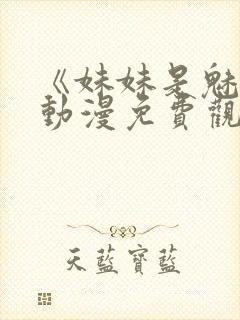 《妹妹是魅
動漫免費觀
天藍寶藍